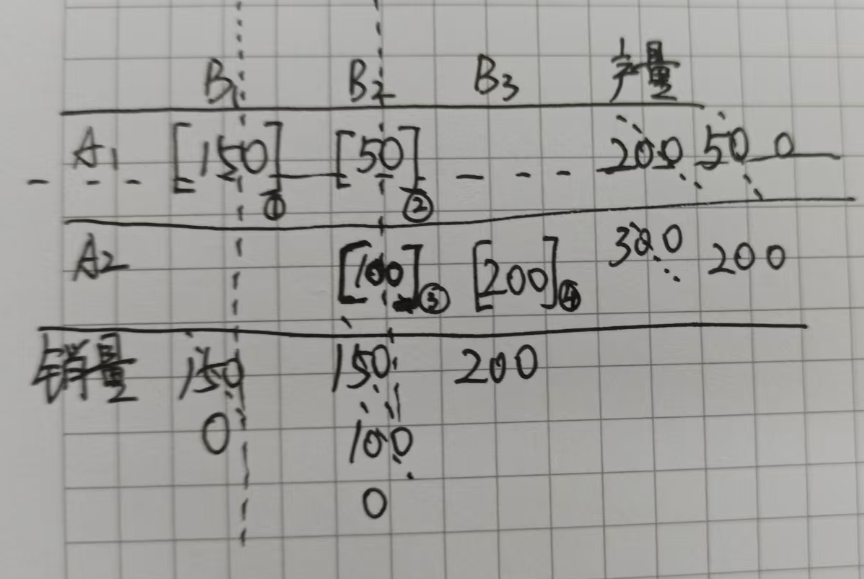 B1 B2 B3 产量
A1 [150] ① [50] ② 200 50 0
A2 [100] ③ [200] ④ 300 200
销量 150 150 200
0 100
0